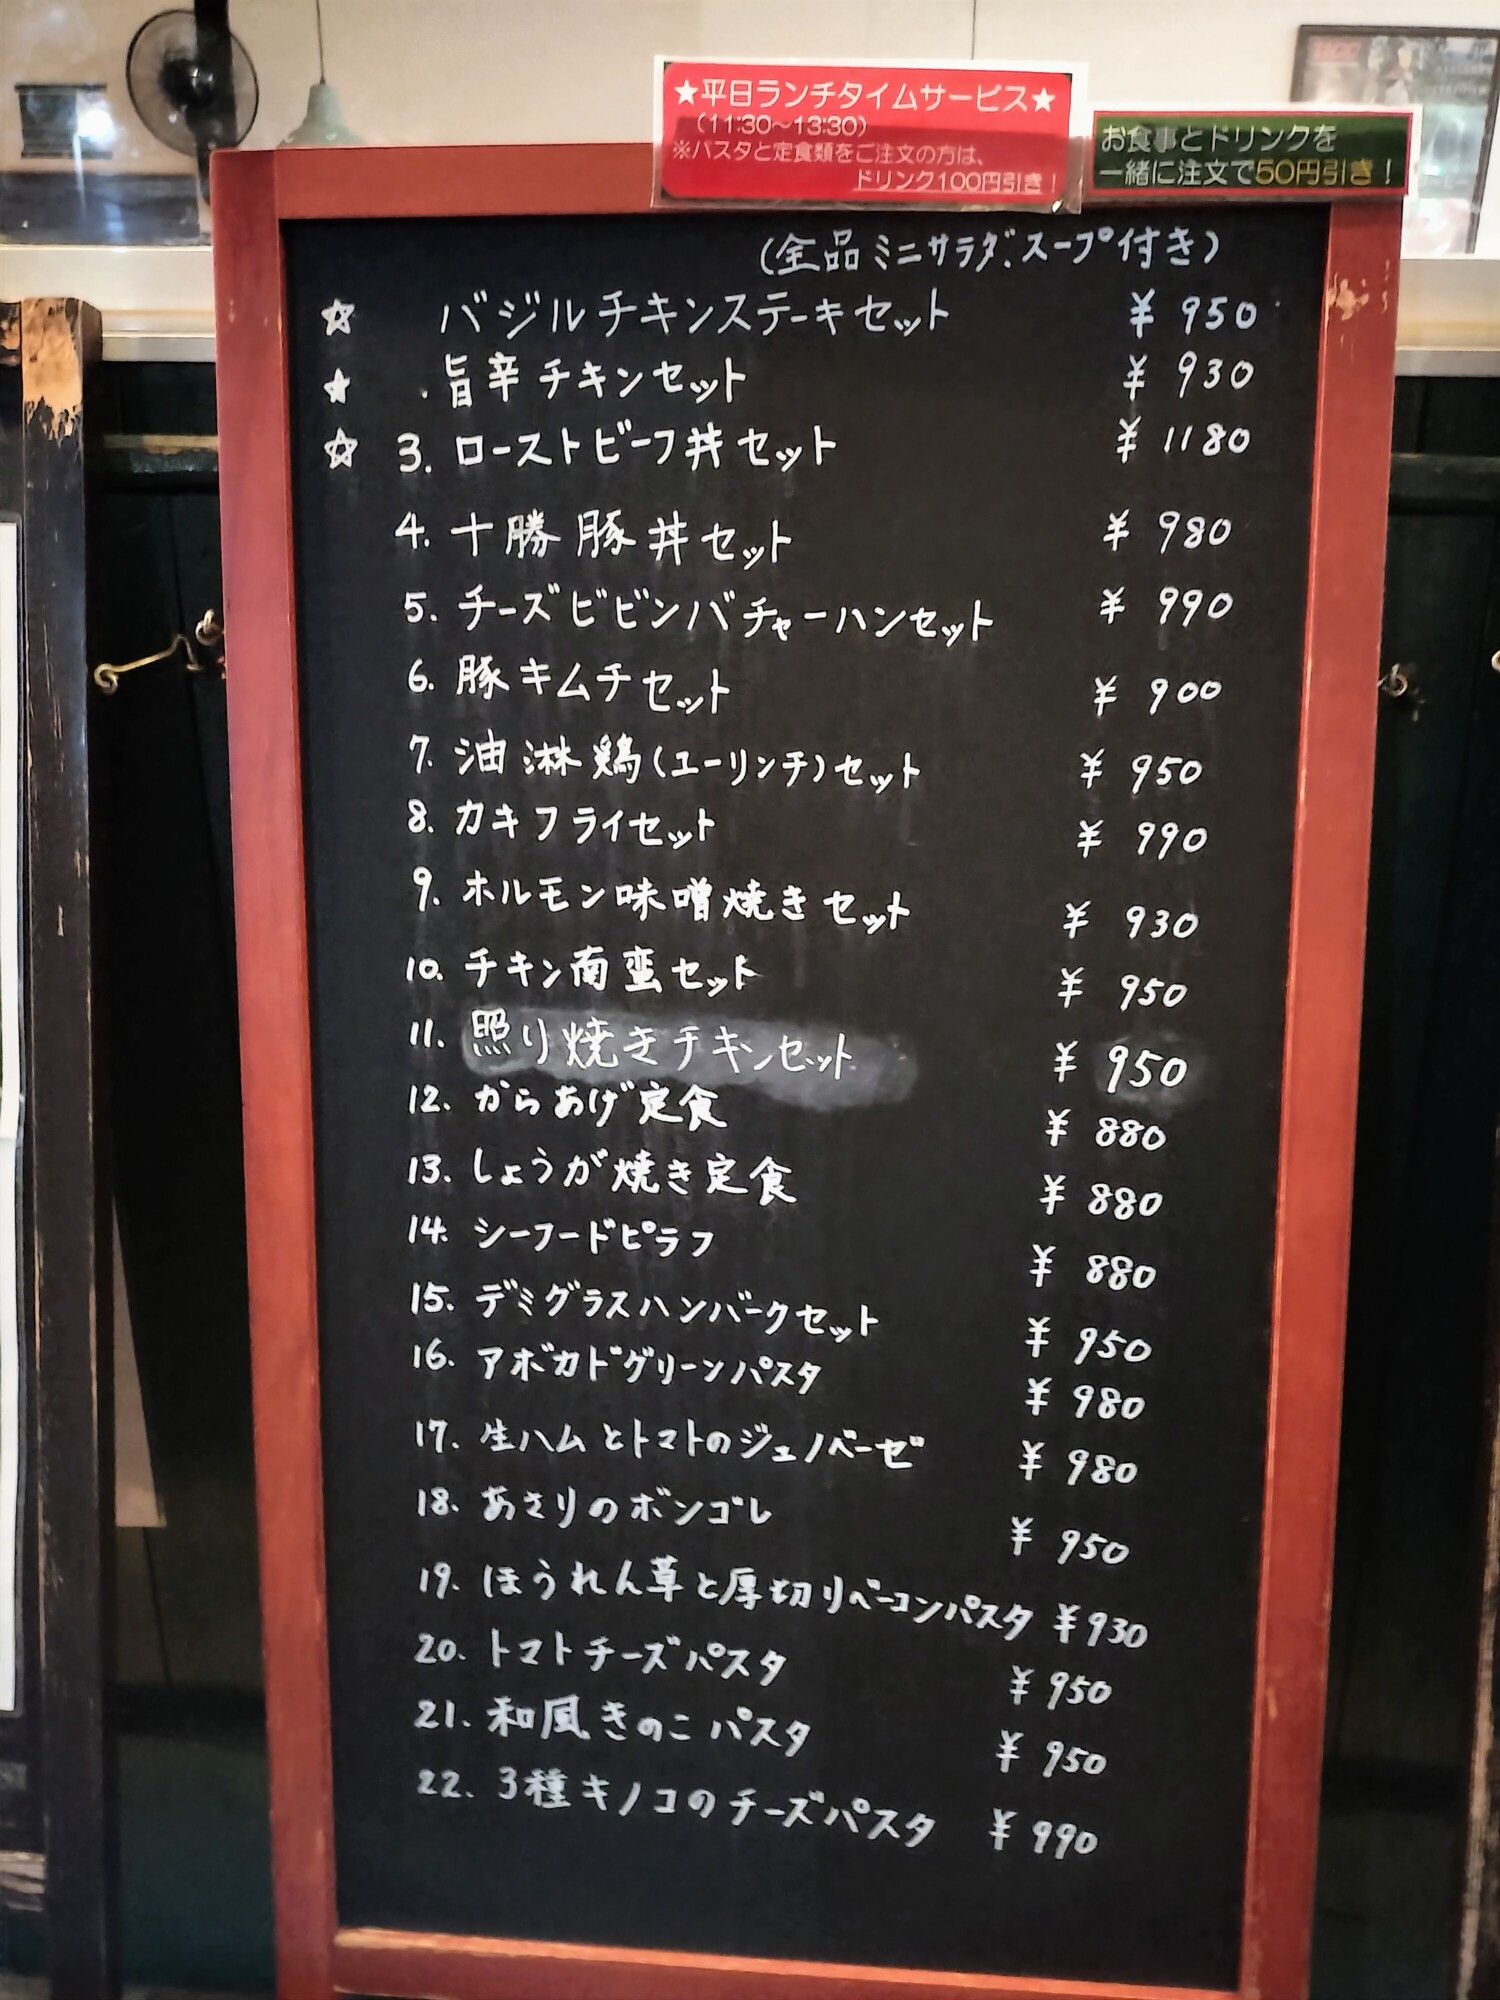 ★平日ランチタイムサービス★
(11:30～13:30)
※パスタと定食類をご注文の方は、
ドリンク100円引き!
お食事とドリンクを
一緒に注文で50円引き!
(全品ミニサラダ、スープ付き)
☆ バジルチキンステーキセット ¥950
★ 旨辛チキンセット ¥930
☆ 3. ローストビーフ丼セット ¥1180
4. 十勝豚丼セット ¥980
5. チーズビビンバチャーハンセット ¥990
6. 豚キムチセット ¥900
7. 油淋鶏(ユーリンチ)セット ¥950
8. カキフライセット ¥990
9. ホルモン味噌焼きセット ¥930
10. チキン南蛮セット ¥950
11. 照り焼きチキンセット ¥950
12. からあげ定食 ¥880
13. しょうが焼き定食 ¥880
14. シーフードピラフ ¥880
15. デミグラスハンバークセット ¥950
16. アボカドグリーンパスタ ¥980
17. 生ハムとトマトのジェノベーゼ ¥980
18. あさりのボンゴレ ¥950
19. ほうれん草と厚切りベーコンパスタ ¥930
20. トマトチーズパスタ ¥950
21. 和風きのこパスタ ¥950
22. 3種キノコのチーズパスタ ¥990